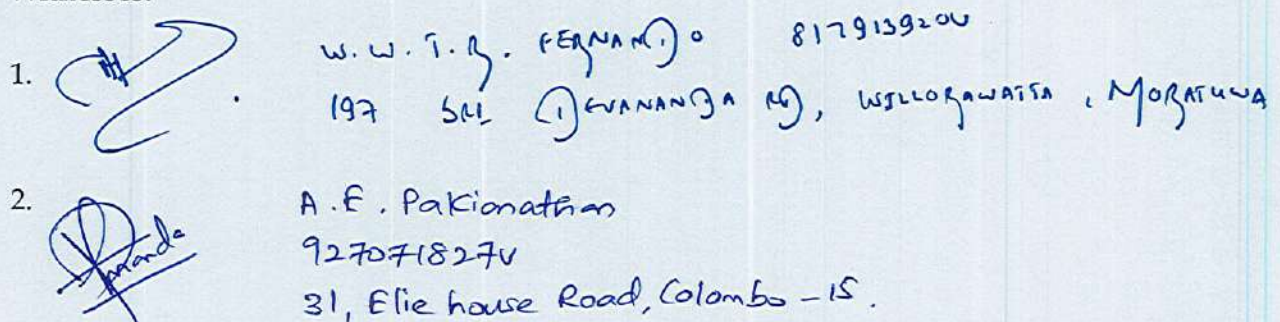 1. W.W.T.R. FERNANDO 817913920V
197 SRI DEVANANDA RD, WILLORAWATTA, MORATUWA
2. A.E. Pakionathan
927071827V
31, Elie house Road, Colombo-15.